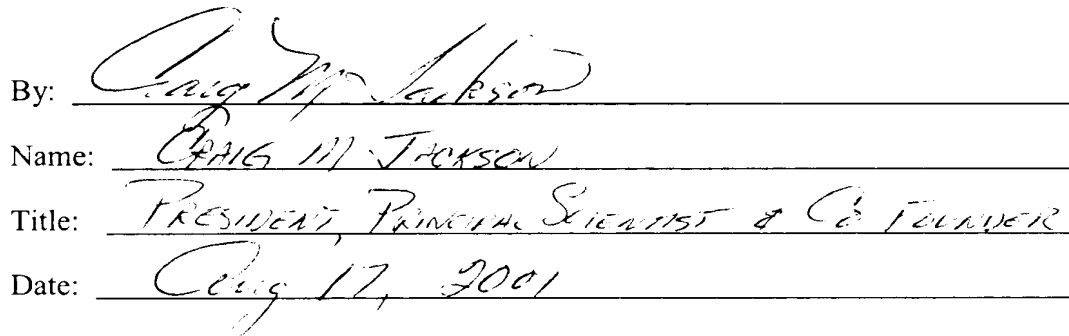 By: Craig M Jackson
Name: CRAIG M JACKSON
Title: PRESIDENT, PRINCIPAL SCIENTIST & CO FOUNDER
Date: Aug 17, 2001